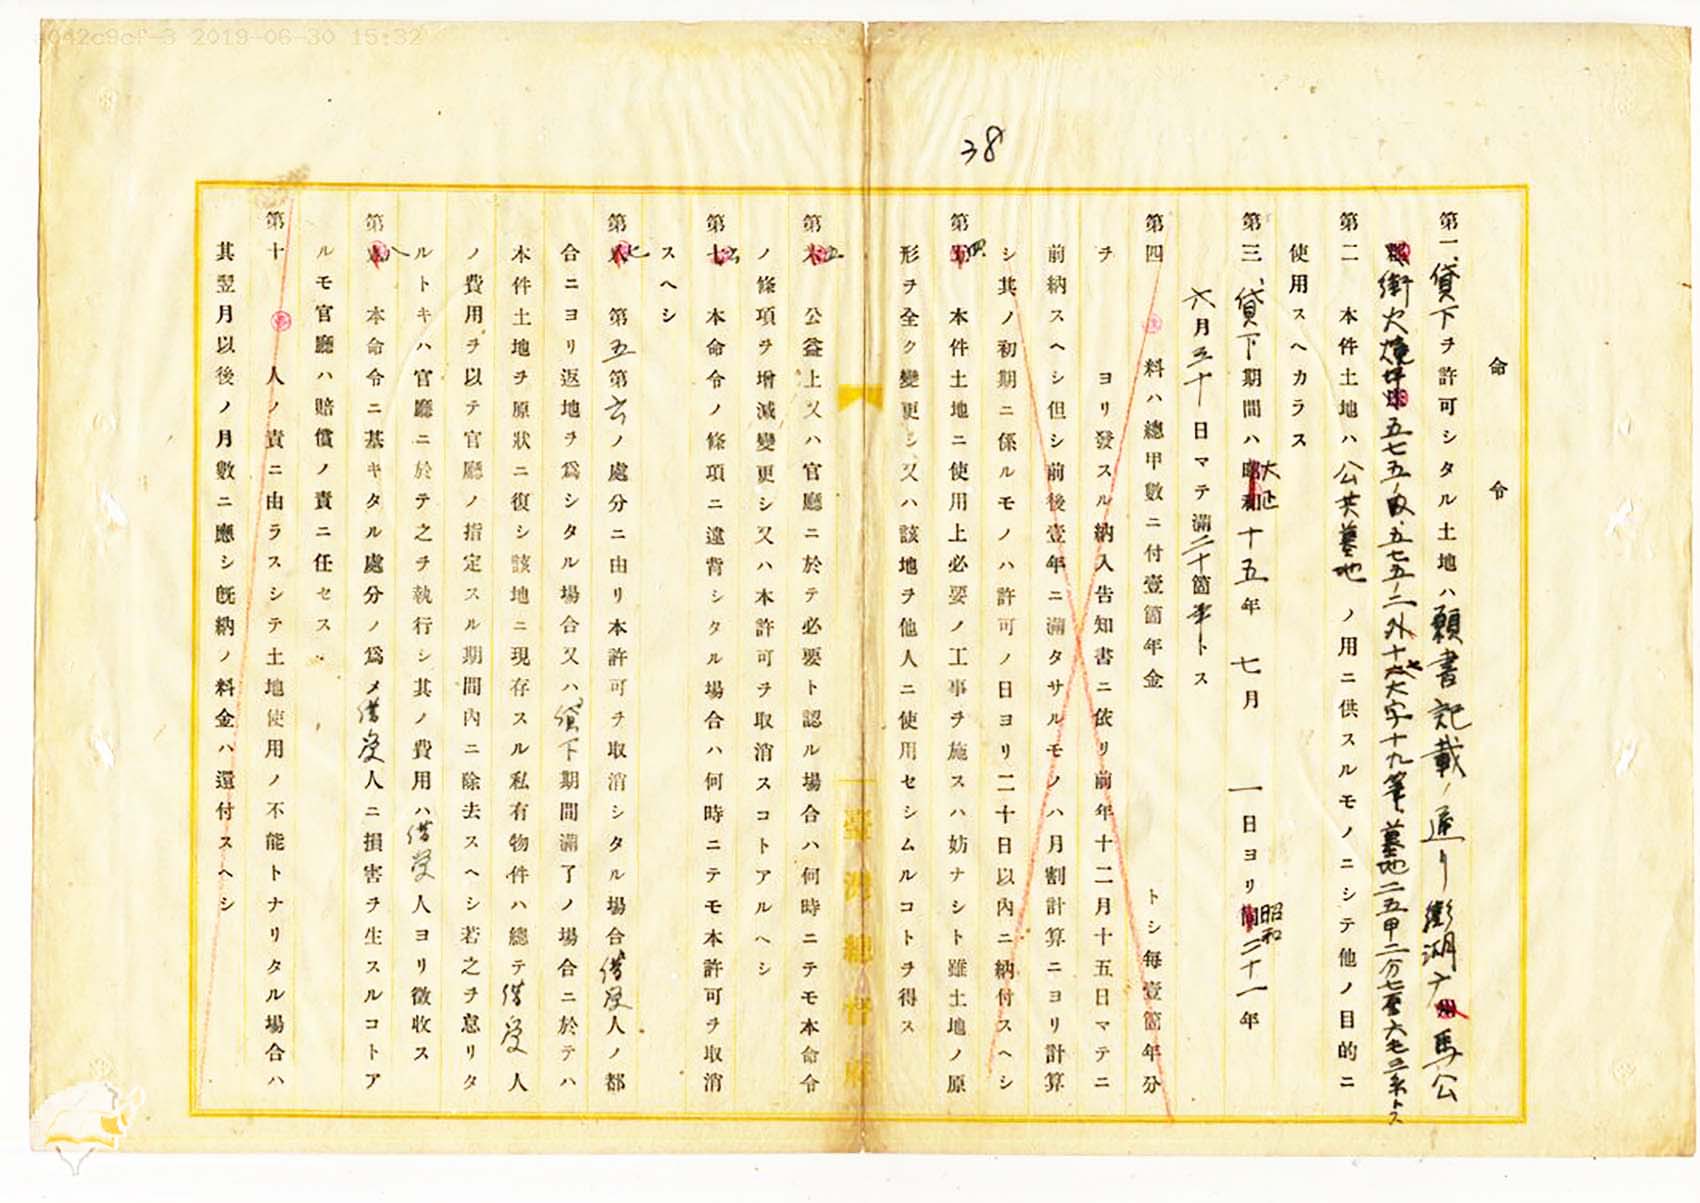 a042c9cf-3 2019-06-30 15:32
38
命令
第一、貸下ヲ許可シタル土地ハ願書記載ノ通リ澎湖廳馬公
街
五七五ノ二外十七大字十九筆墓地二五甲二分七
第二 本件土地ハ公共墓地ノ用ニ供スルモノニシテ他ノ目的ニ
使用スヘカラス
第三、貸下期間ハ大正十五年 七月 一日ヨリ昭和二十一年
六月三十日マテ滿二十箇年トス
第四 料ハ總甲數ニ付壹箇年金 トシ每壹箇年分
ヲ ヨリ發スル納入告知書ニ依リ前年十二月十五日マテニ
前納スヘシ但シ前後壹年ニ滿タサルモノハ月割計算ニヨリ計算
シ其ノ初期ニ係ルモノハ許可ノ日ヨリ二十日以內ニ納付スヘシ
第四 本件土地ニ使用上必要ノ工事ヲ施スハ妨ナシト雖土地ノ原
形ヲ全ク變更シ又ハ該地ヲ他人ニ使用セシムルコトヲ得ス
第五 公益上又ハ官廳ニ於テ必要ト認ル場合ハ何時ニテモ本命令
ノ條項ヲ增減變更シ又ハ本許可ヲ取消スコトアルヘシ
第六 本命令ノ條項ニ違背シタル場合ハ何時ニテモ本許可ヲ取消
スヘシ
第七 第五第六ノ處分ニ由リ本許可ヲ取消シタル場合借受人ノ都
合ニヨリ返地ヲ爲シタル場合又ハ貸下期間滿了ノ場合ニ於テハ
本件土地ヲ原狀ニ復シ該地ニ現存スル私有物件ハ總テ借受人
ノ費用ヲ以テ官廳ノ指定スル期間內ニ除去スヘシ若之ヲ怠リタ
ルトキハ官廳ニ於テ之ヲ執行シ其ノ費用ハ借受人ヨリ徵收ス
第八 本命令ニ基キタル處分ノ爲メ借受人ニ損害ヲ生スルコトア
ルモ官廳ハ賠償ノ責ニ任セス
第十 人ノ責ニ由ラスシテ土地使用ノ不能トナリタル場合ハ
其翌月以後ノ月數ニ應シ旣納ノ料金ハ還付スヘシ
臺灣總督府